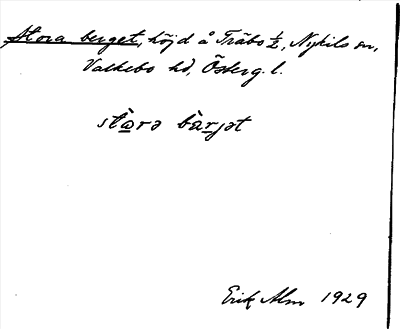 Stora berget, höjd å Träbo ½, Nykils sn,
Valkebo hd, Österg. l.
stɷ̀rə bàrjət
Erik Alm 1929